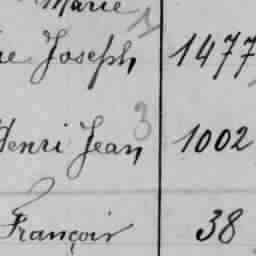 Marie
re Joseph 1477
3
Henri Jean 1002
François 38